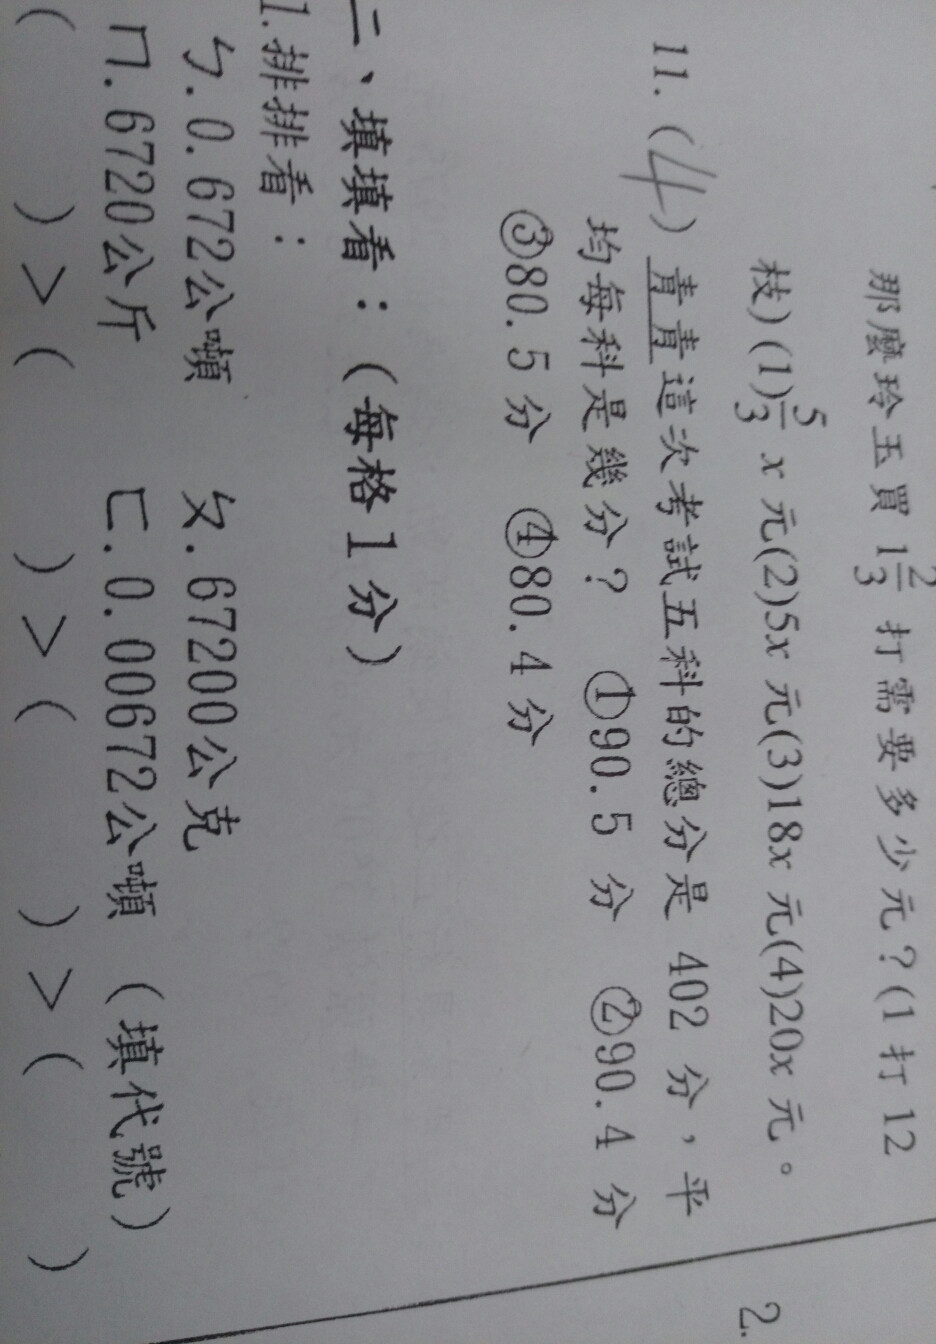 那麼玲玉買 1 2/3 打需要多少元?(1 打 12
枝)(1)5/3 x 元(2)5x 元(3)18x 元(4)20x 元。
11.(4)青青這次考試五科的總分是 402 分,平
均每科是幾分? ①90.5 分 ②90.4 分
③80.5 分 ④80.4 分
二、填填看:(每格1分)
1.排排看:
ㄅ.0.672公噸 ㄆ.67200公克
ㄇ.6720公斤 ㄈ.0.00672公噸 (填代號)
( )>( )>( )>( )
2.